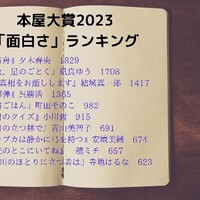 本屋大賞2023
「面白さ」ランキング
舟』夕木春央 1829
、星のごとく』凪良ゆう 1708
真相をお話しします』結城真一郎 1417
弾』呉勝浩 1365
ごはん』町田そのこ 982
のクイズ』小川哲 915
の立つ林で』青山美智子 691
ブカは静かに弓を持つ』安壇美緒 674
のとこにいてね』一穂ミチ 657
川のほとりに立つ者は』寺地はるな 623